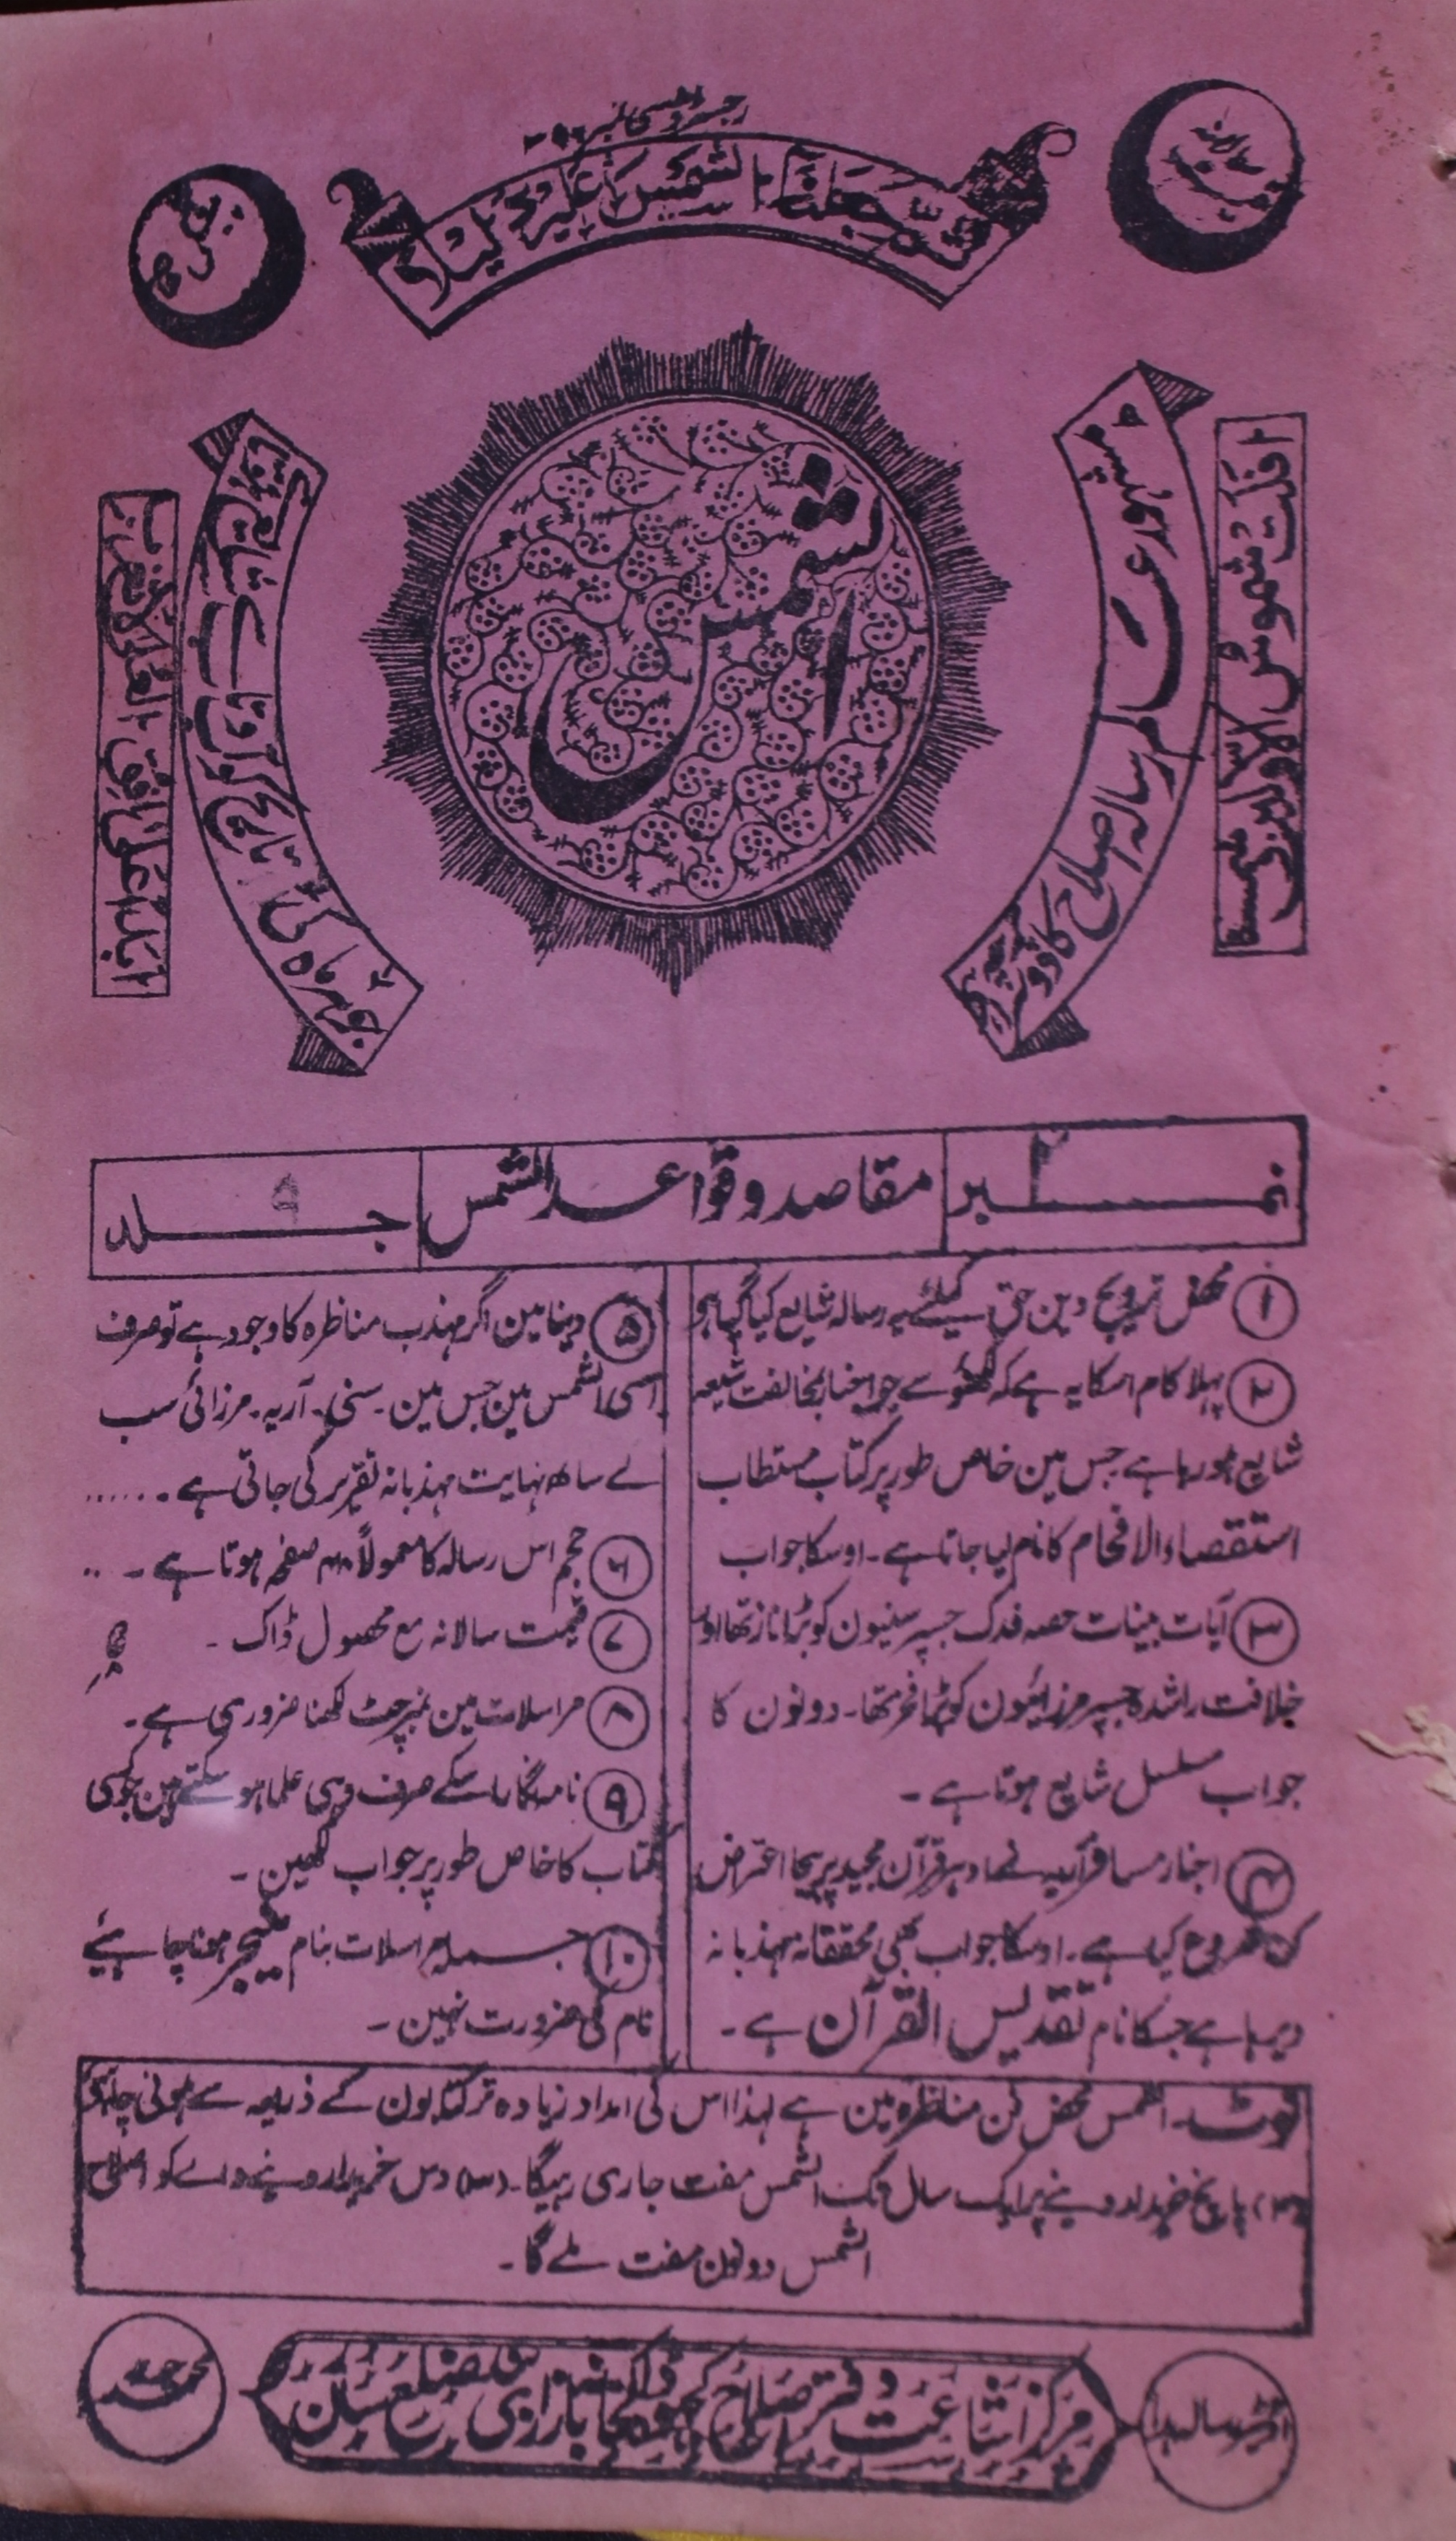 ثم جعلنا الشمس عليه دليلا
افلت شموس الاولین و شمسنا
ابدا علی افق العلی لا تغرب
رسالہ اصلاح کا دوسرا
الشمس
نمبر ۲
مقاصد و قواعد الشمس
جلد ۹
۱ محض ترویج دین حق کیلئے یہ رسالہ شایع کیا گیا ہی
۲ پہلا کام اسکا یہ ہے کہ لکھنؤ سے جو اخبار بمخالفت شیعہ
شایع ہو رہا ہے جس مین خاص طور پر کتاب مستطاب
استقصاء الافحام کا نام لیا جاتا ہے۔ اوسکا جواب
۳ آیات بینات حصہ فدک جسپر سنیون کو بڑا ناز تھا اور
خلافت راشدہ جسپر مرزائیون کو بڑا فخر تھا۔ دونون کا
جواب مسلسل شایع ہوتا ہے۔
۴ اخبار مسافر آریہ نے ادہر قرآن مجید پر بیجا اعتراض
کرنا شروع کیا ہے۔ اوسکا جواب بھی محققانہ مہذبانہ
دیرہا ہے جسکا نام تقدیس القرآن ہے۔
۵ دنیا مین اگر مہذب مناظرہ کا وجود ہے تو صرف
اسی الشمس مین جس مین۔ سنی۔ آریہ۔ مرزائی سب
کے ساتھ نہایت مہذبانہ تقریر کی جاتی ہے۔......
۶ حجم اس رسالہ کا معمولاً ۴۰ صفحہ ہوتا ہے۔ ..
۷ قیمت سالانہ مع محصول ڈاک۔
۸ مراسلات مین نمبر چٹ لکھنا ضروری ہے۔
۹ نامہ نگار اسکے صرف وہی علما ہو سکتے ہین جو کسی
کتاب کا خاص طور پر جواب لکھین۔
۱۰ جملہ مراسلات بنام منیجر ہونا چاہیئے
نام کی ضرورت نہین۔
نوٹ۔ الشمس محض فن مناظرہ مین ہے لہذا اس کی امداد زیادہ تر کتابون کے ذریعہ سے ہونی چاہئی
(۲) پانچ خریدار دینے پر ایک سال تک الشمس مفت جاری رہیگا۔ (۳) دس خریدار دینے والے کو اصلاح
الشمس دونون مفت ملے گا۔
مرکز اشاعت دفتر اصلاح کھجوہ ڈاکخانہ بازار ضلع سارن